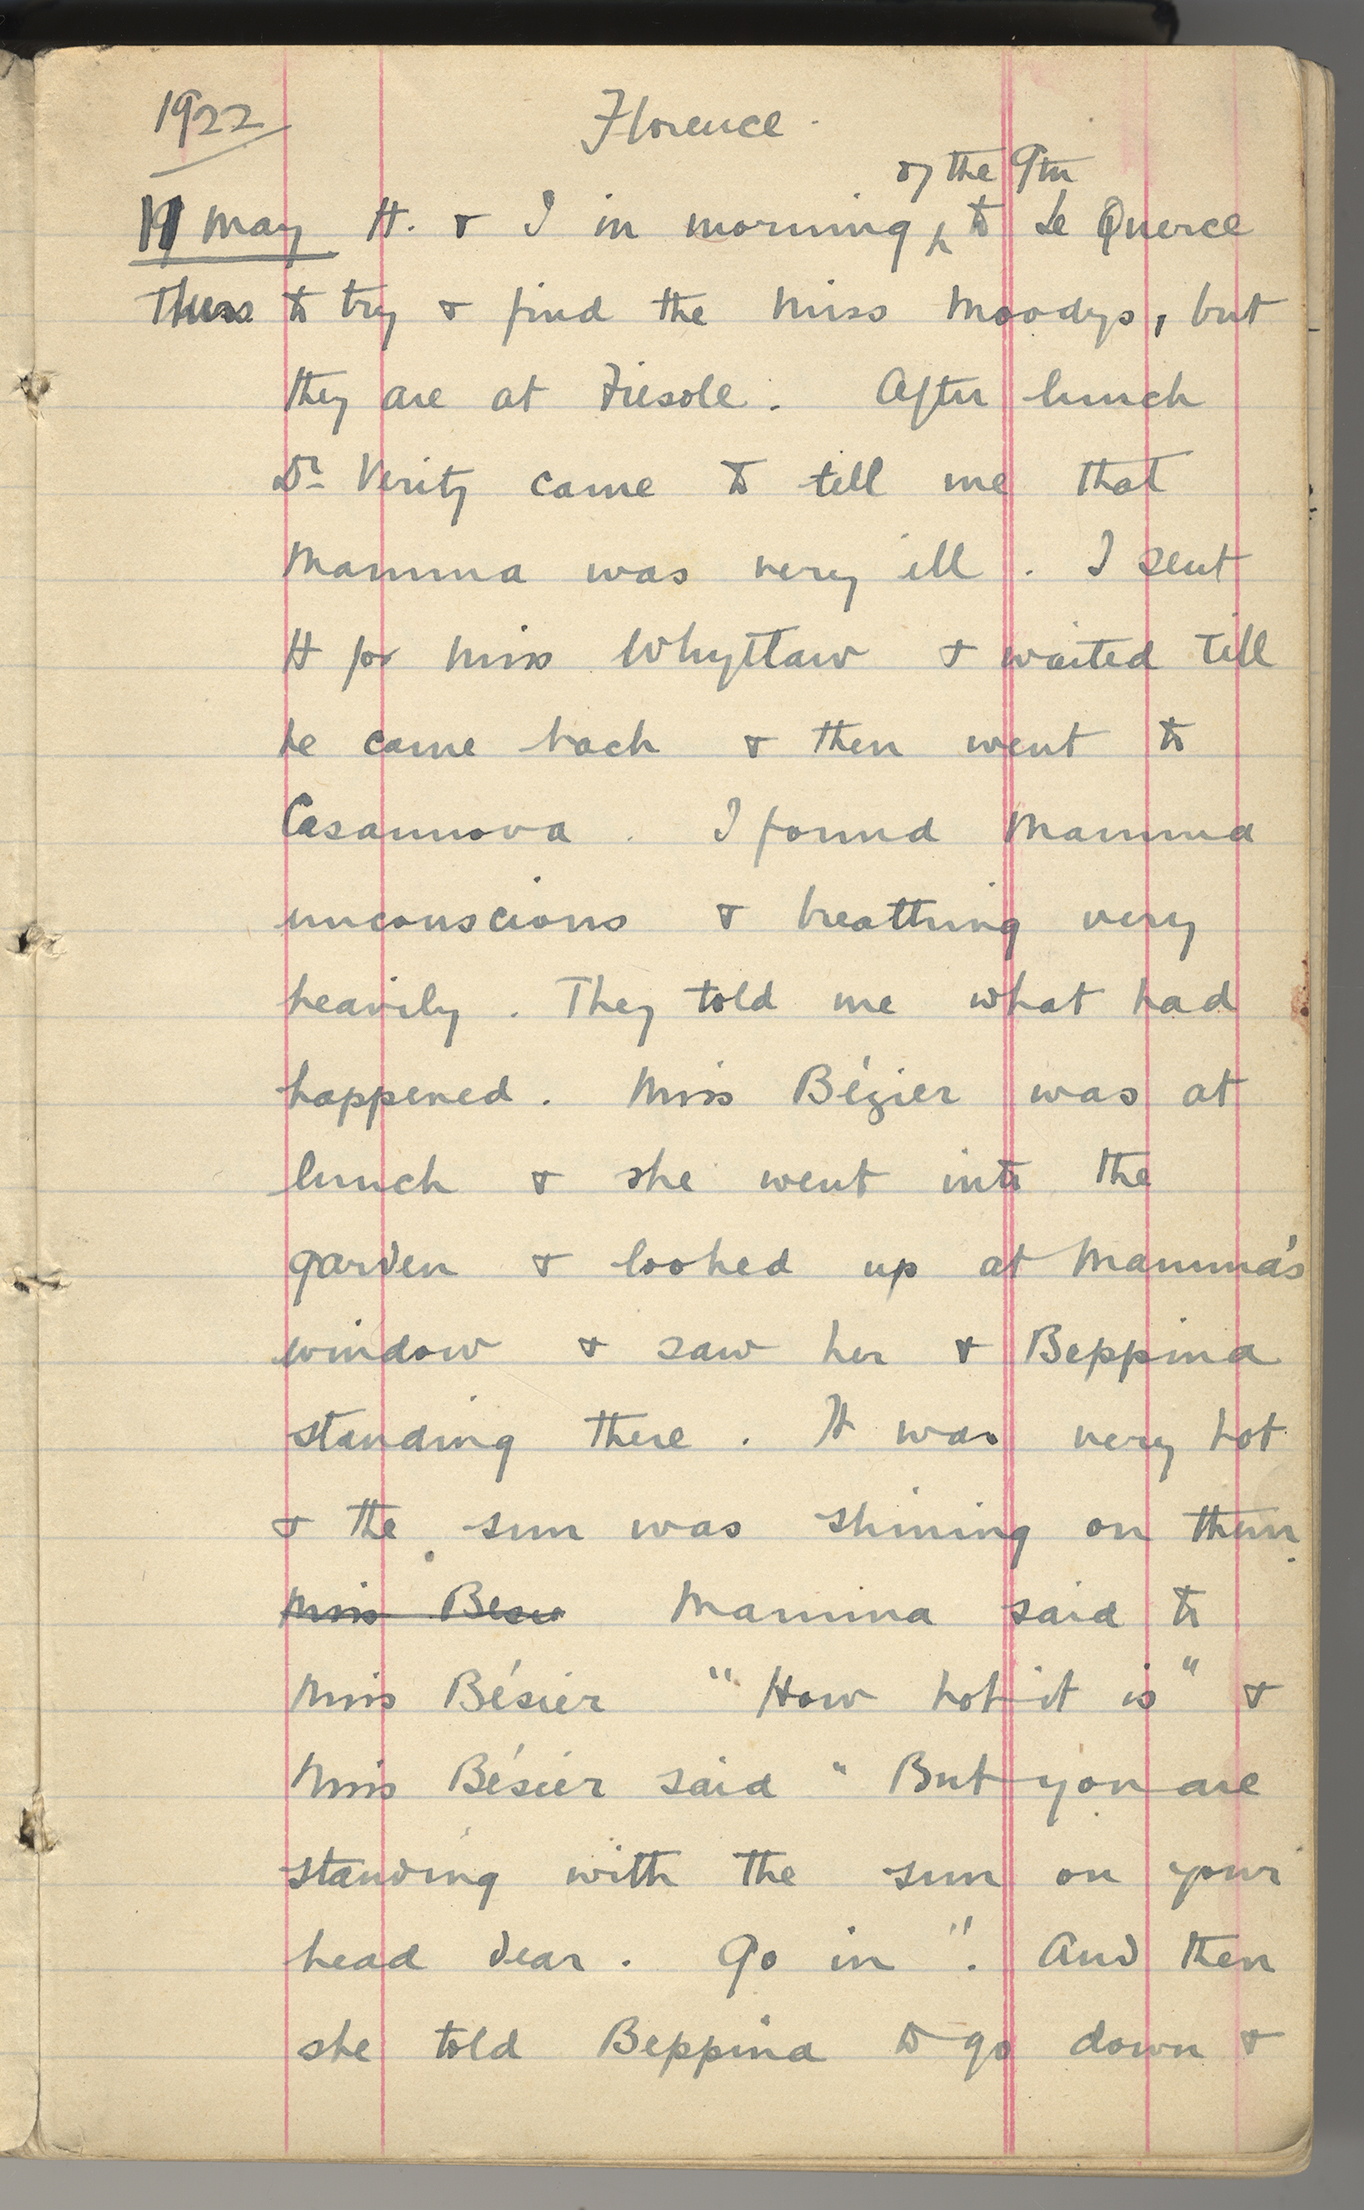 1922
Florence
of the 9th
11 May H. & I in morning ^ to Le Querce
Thurs to try & find the Miss Moodys, but
they are at Fiesole. After lunch
Dr Verity came to tell me that
Mamma was very ill. I sent
H for Miss Whyttaw & waited till
he came back & then went to
Casannova. I found Mamma
unconscious & breathing very
heavily. They told me what had
happened. Miss Bézier was at
lunch & she went into the
garden & looked up at Mamma's
window & saw her & Beppina
standing there. It was very hot
& the sun was shining on them.
Miss Besir Mamma said to
Miss Bésier "How hot it is" &
Miss Bésier said "But you are
standing with the sun on your
head dear. Go in". And then
she told Beppina to go down &